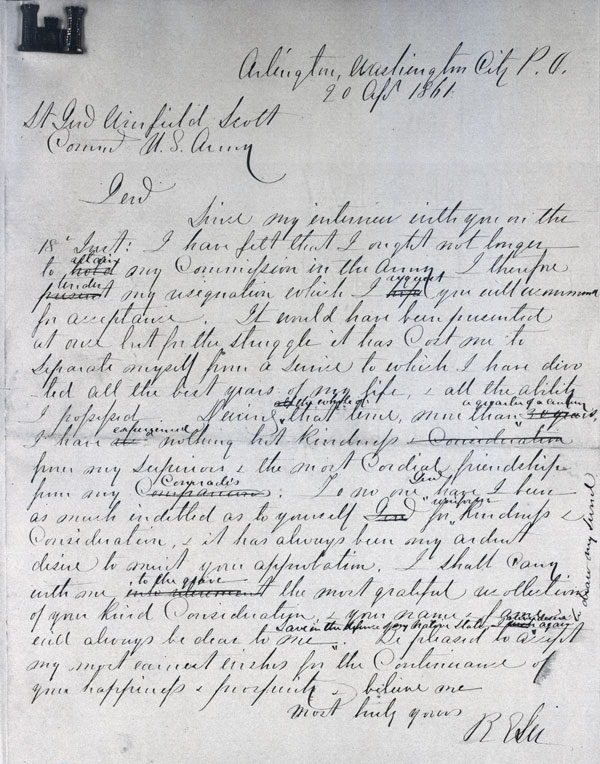 Arlington, Washington City P.O.
20 Apl 1861
Lt Genl Winfield Scott
Commd U.S. Army
Genl
Since my interview with you on the
18th Inst: I have felt that I ought not longer
retain
to hold my Commission in the Army. I therefore
tender request
present my resignation which I you will recommend
for acceptance. It would have been presented
at once but for the struggle it has Cost me to
separate myself from a service to which I have devo
ted all the best years of my life, & all the ability
I possessed. During the whole of that time, more than a quarter of a century 30 years,
experienced
I have nothing but kindness & Consideration
from my Superiors & the most Cordial friendship
Comrades Genl
from my Companions: To no one have I been
uniform
as much indebted as to yourself Genl for kindness &
Consideration, & it has always been my ardent
desire to merit your approbation. I shall carry
to the grave
with me into retirement the most grateful recollections
of your kind Consideration, & your name & fame
will always be dear to me. Save in the defence of my native State
Be pleased to accept
my most earnest wishes for the Continuance of
your happiness & prosperity & believe me
most truly yours
R E Lee
draw my sword